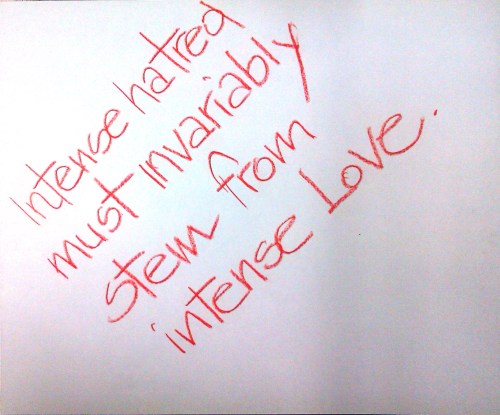 Intense hatred
must invariably
stem from
intense Love.